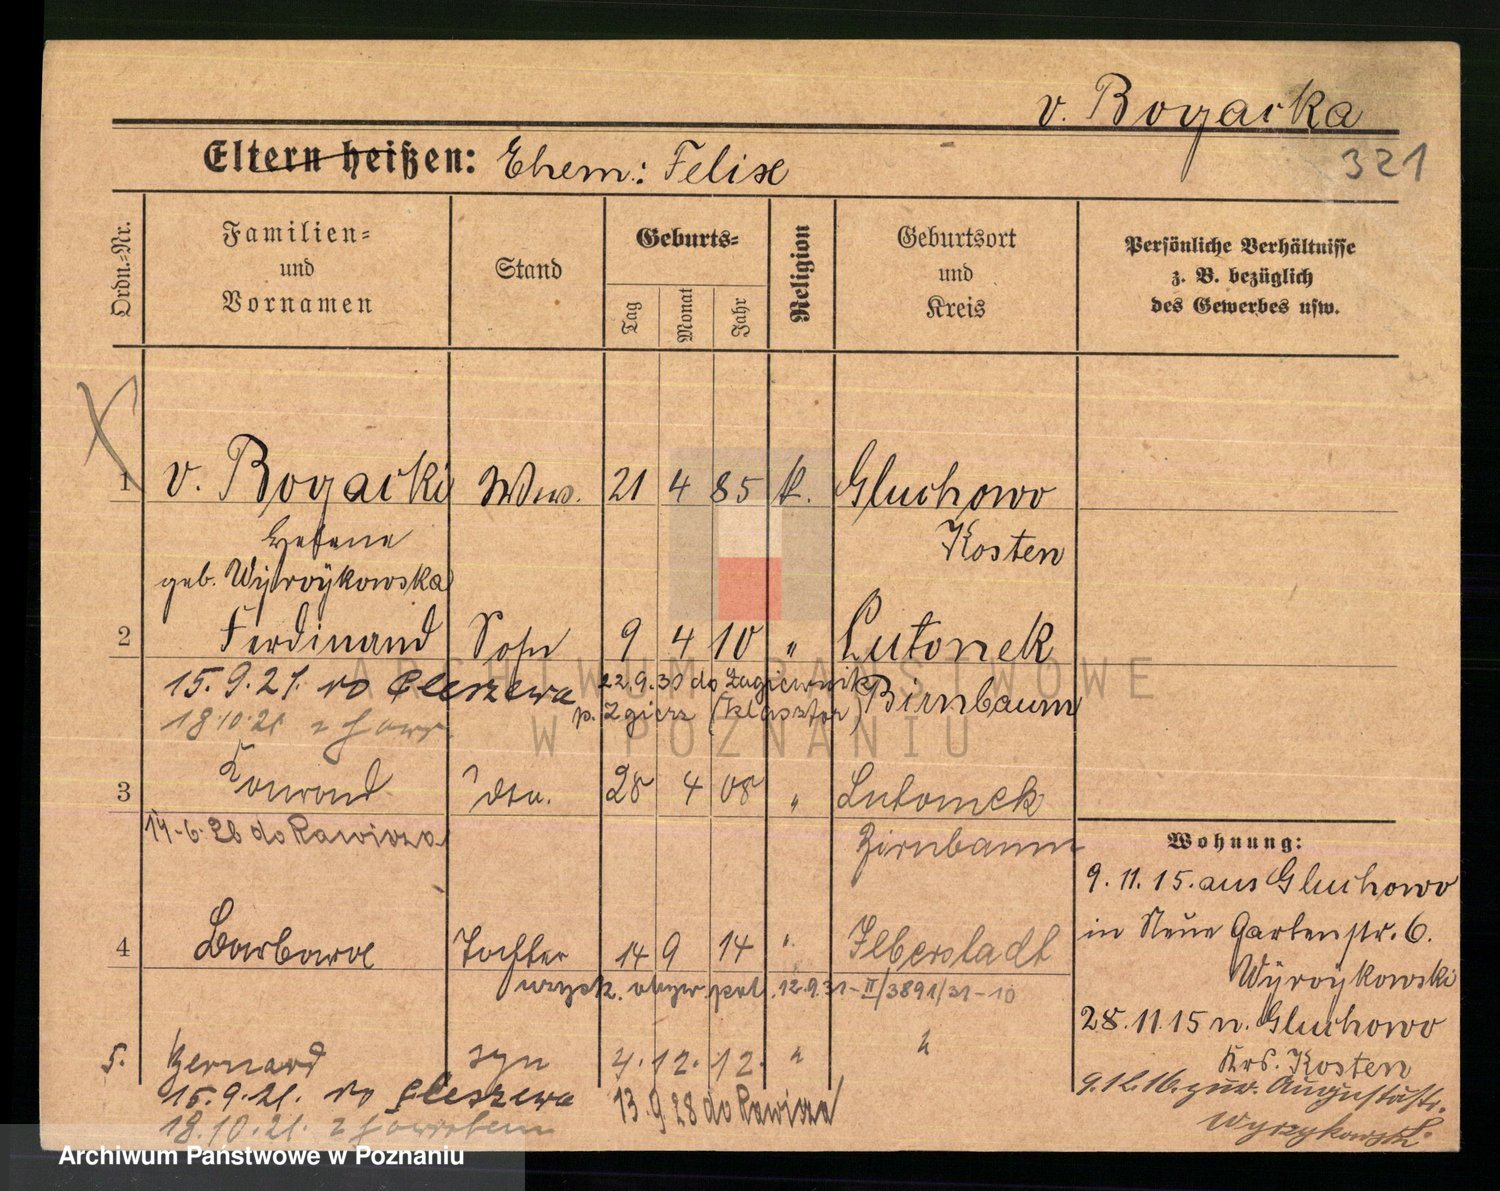 v. Bogacka
321
Eltern heißen: Ehem.: Felix
Ordn.-Nr.
Familien-
und
Vornamen
Stand
Geburts-
Tag
Monat
Jahr
Religion
Geburtsort
und
Kreis
Persönliche Verhältnisse
z. B. bezüglich
des Gewerbes usw.
1 v. Bogacki Wwe. 21 4 85 k. Gluchowo
Helene Kosten
geb. Wyrzykowska
2 Ferdinand Sohn 9 4 10 " Lutomek
15.9.21. do 22.9.30 do Łagiewnik Birnbaum
p. Zgierz (klasztor)
18.10.21 z
3 Konrad dto. 28 4 08 " Lutomek
14-6-26 do Rawicza Birnbaum
4 Barbara Tochter 14 9 14 " Ilberstadt
uzysk. obyw. pol. 12.9.31-II/3891/31-10
5. Bernard syn 4. 12. 12. " "
15.9.21. do 13.9.28 do Rawicza
18.10.21. z
Wohnung:
9.11.15. aus Gluchowo
in Neue Gartenstr. 6.
Wyrzykowski
28.11.15 n. Gluchowo
Krs. Kosten
9.12.16. zur. Augustastr.
Wyrzykowski
ARCHIWUM PAŃSTWOWE
W POZNANIU
Archiwum Państwowe w Poznaniu